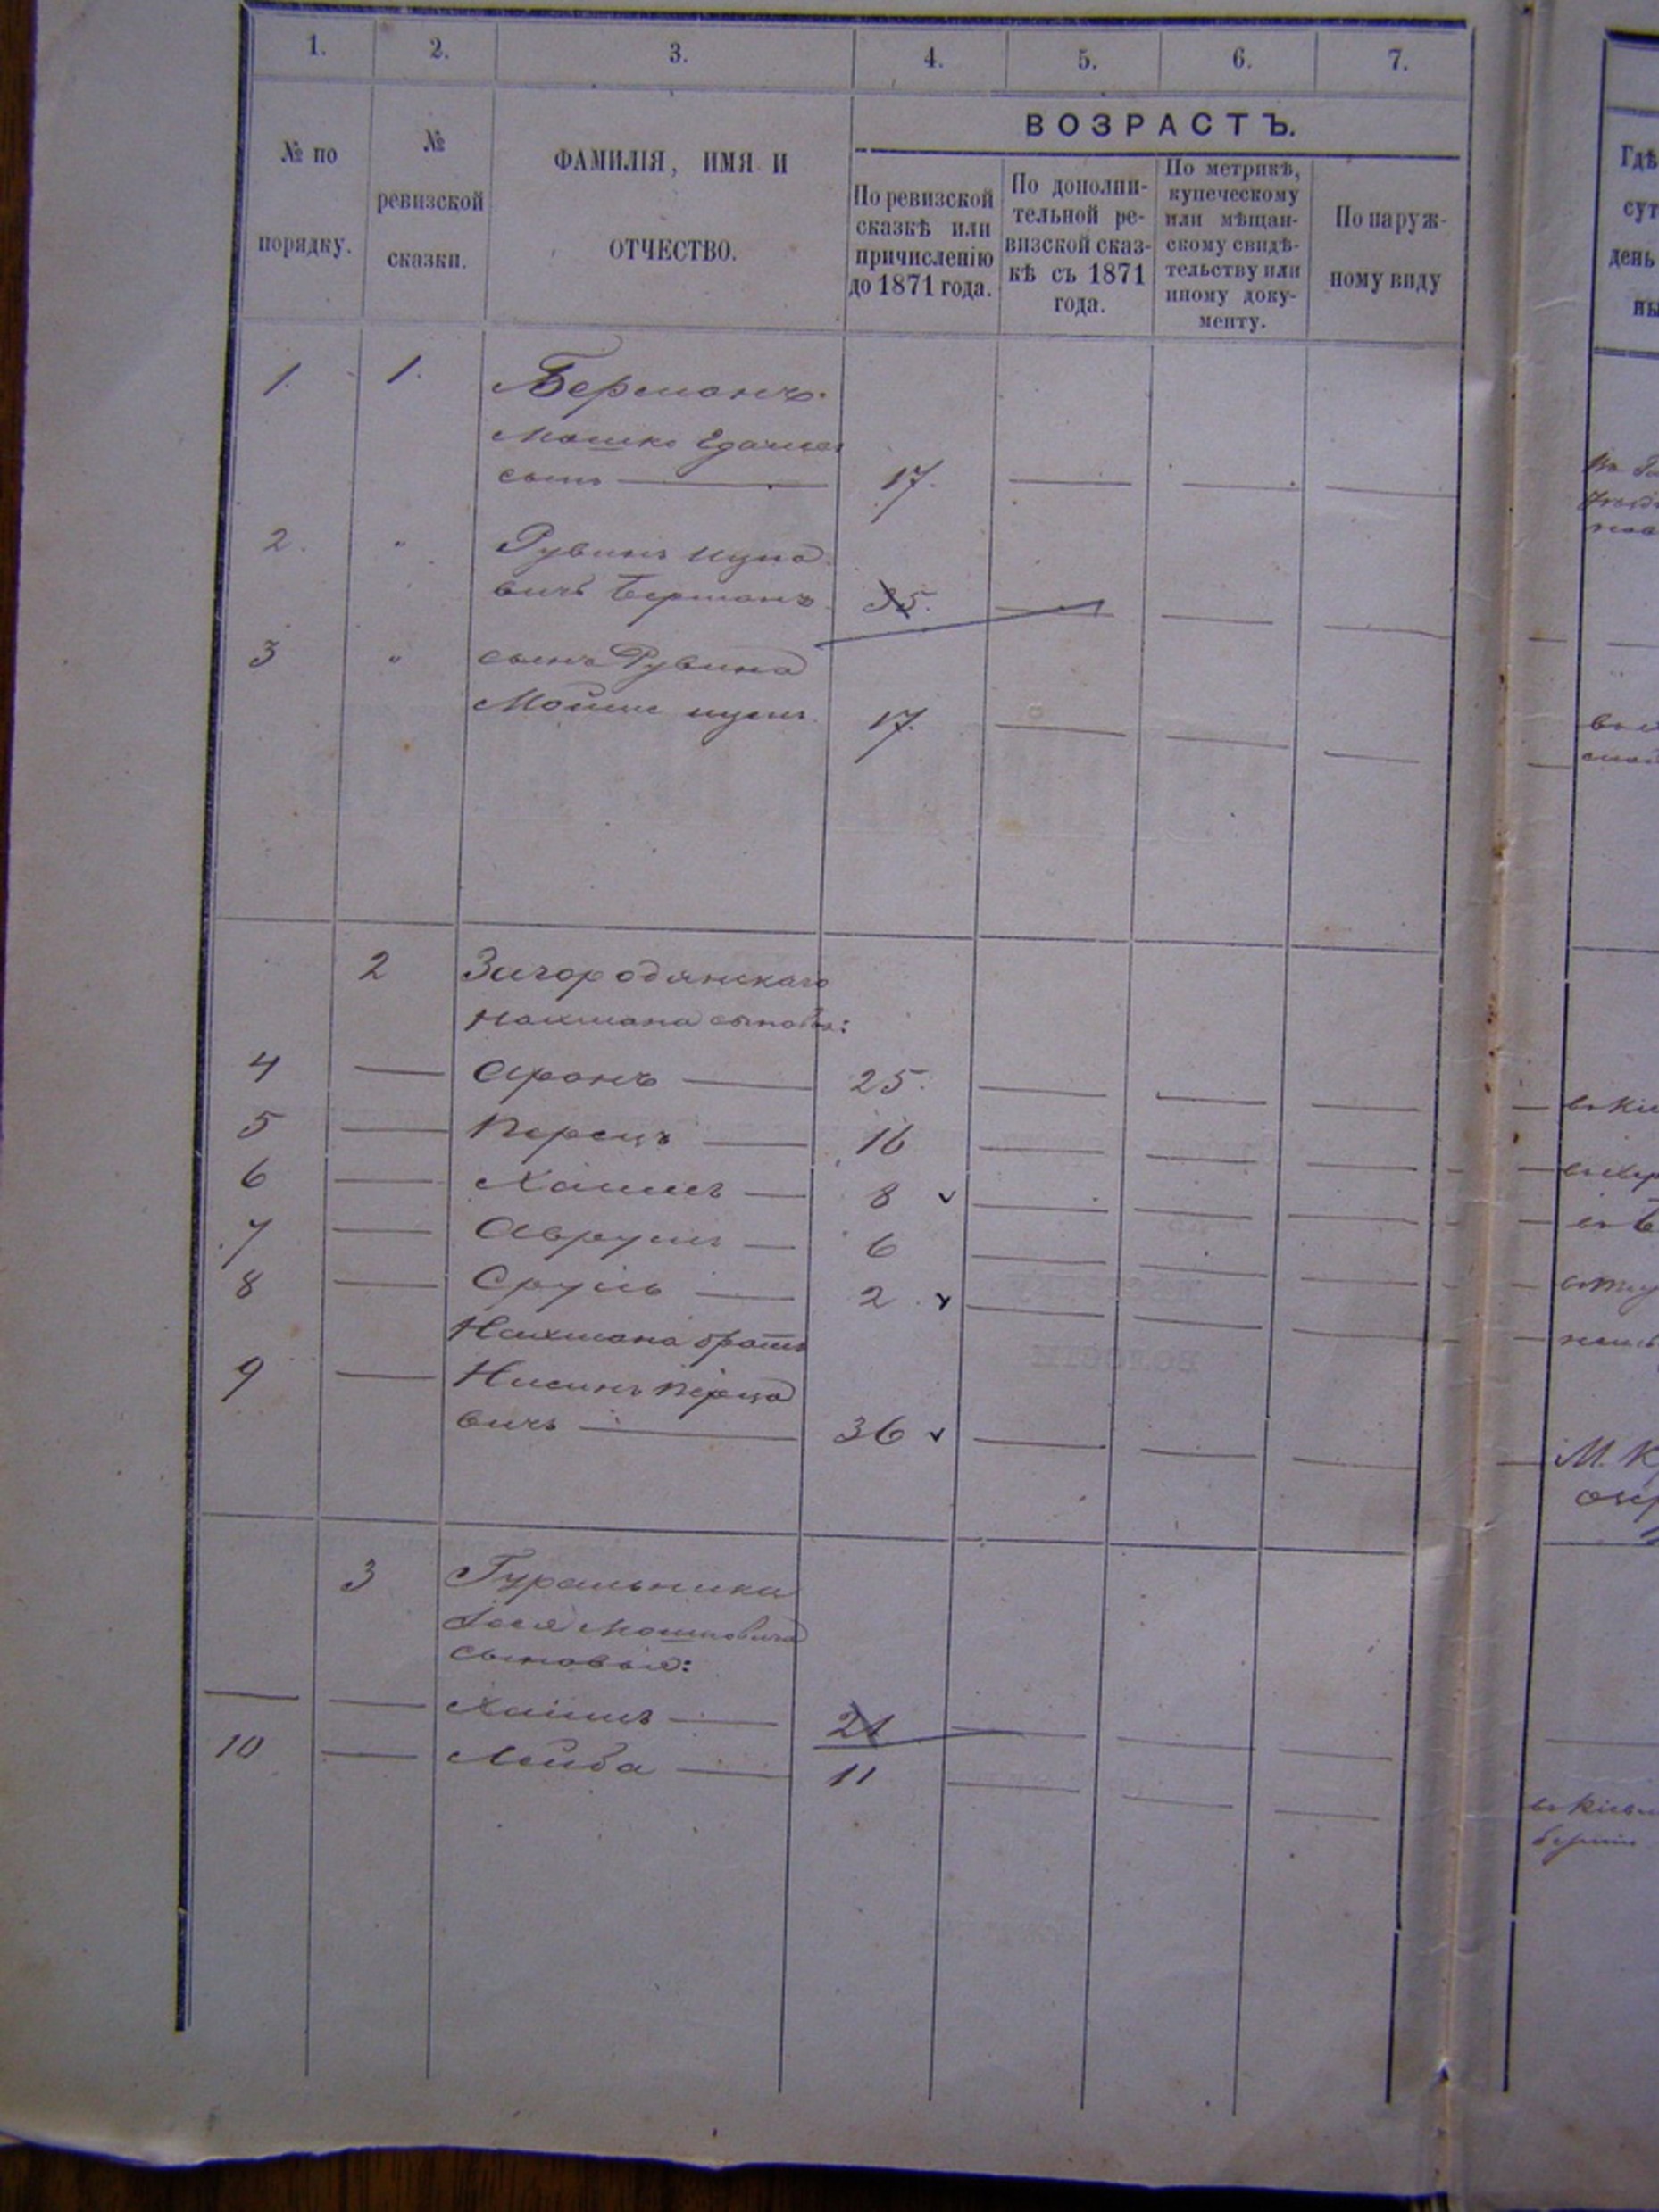 1. 2. 3. 4. 5. 6. 7.
№ по порядку.
№ ревизской сказки.
ФАМИЛІЯ, ИМЯ И
ОТЧЕСТВО.
ВОЗРАСТЪ.
По ревизской
сказкѣ или
причисленію
до 1871 года.
По дополни-
тельной ре-
визской сказ-
кѣ съ 1871
года.
По метрикѣ,
купеческому
или мѣщан-
скому свидѣ-
тельству или
иному доку-
менту.
По наруж-
ному виду
Гдѣ
сут
день
1. 1. Берманъ.
Мошко
сынъ — 17. — — —
2. " Рувинъ Ицко
вичъ Берманъ 35. — — —
3 " сынъ Рувина
Мойше ицикъ 17. — — —
2 Загородянскаго
Нахмана сыновья:
4 — Аронъ — 25. — — —
5 — Перецъ — 16 — — —
6 — Хаимъ — 8 — — —
7 — Аврумъ — 6 — — —
8 — Сруль — 2 — — —
Нахмана братъ
9 — Нисинъ Перцо
вичъ — 36 — — —
3 Гуральника
Іося Мошковича
сыновья:
— — Хаимъ — 21 — — —
10 — Лейба — 11 — — —